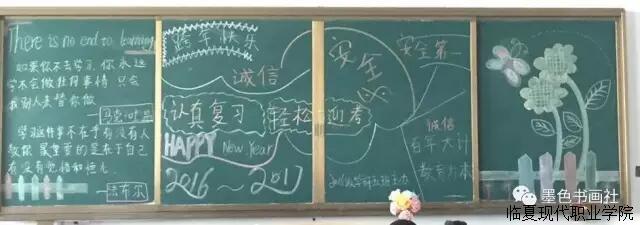 There is no end to learning
如果你不去学习,你永远
学不会做任何事情,只会
找别人来替你做
学习这件事不在乎有没有人
教你,最重要的是在于自己
有没有觉悟和恒心
——法布尔
跨年快乐
诚信
认真复习 轻松迎考
HAPPY New Year
2016~2017
安全
安全第一
诚信
百年大计
教育为本
墨色书画社
临夏现代职业学院